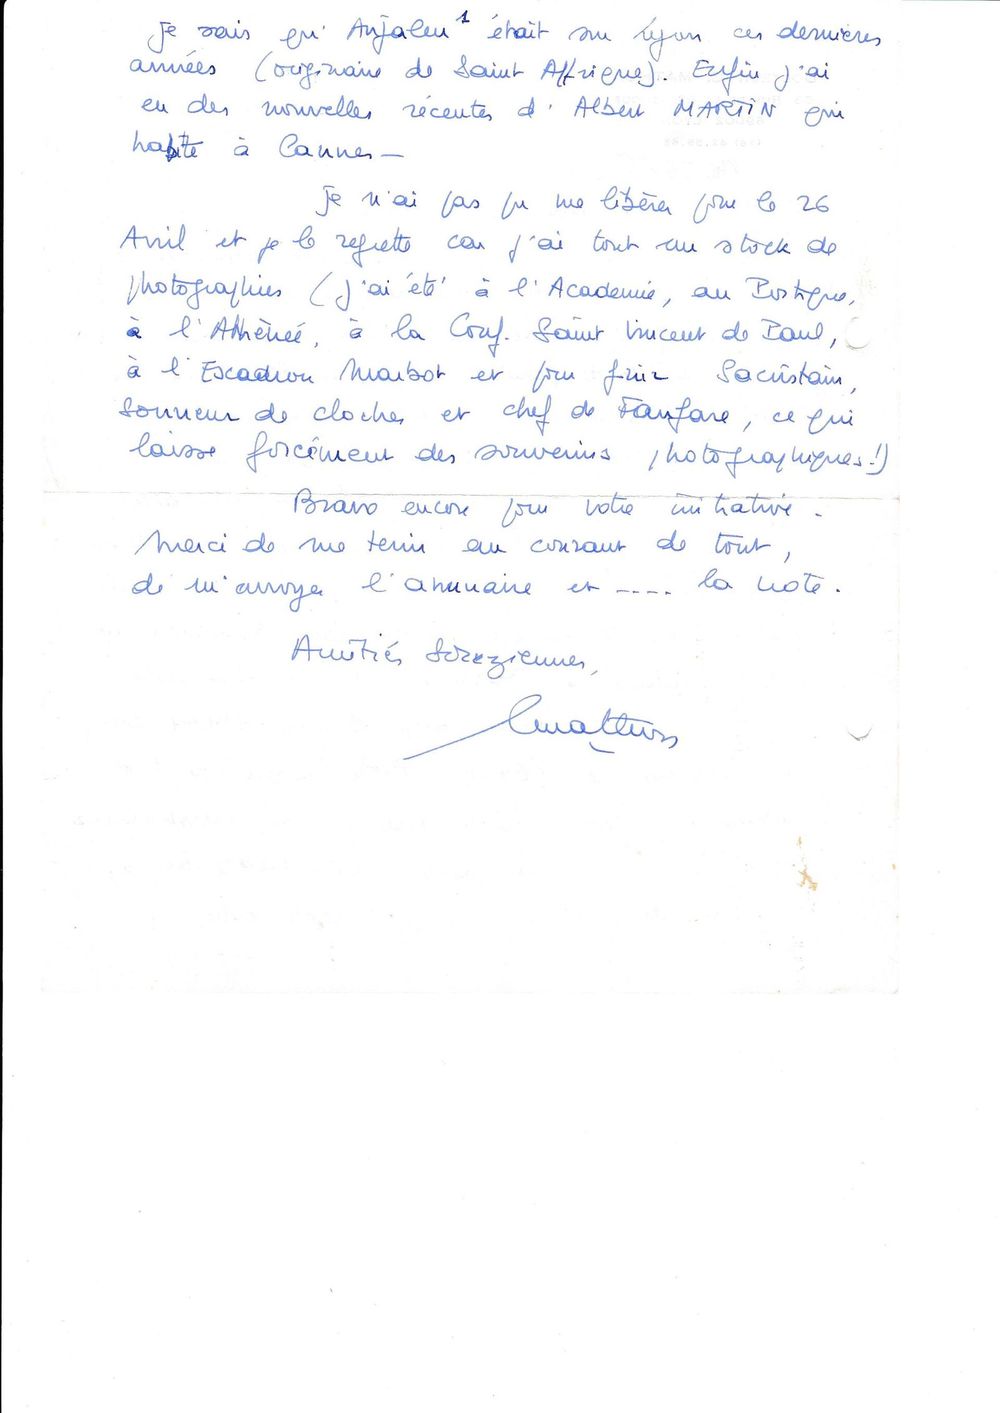 Je sais qu'Anjaleu 1 était sur Lyon ces dernières
années (originaire de Saint Affrique). Enfin j'ai
eu des nouvelles récentes d'Albert MARTIN qui
habite à Cannes -
Je n'ai pas pu me libérer pour le 26
Avril et je le regrette car j'ai tout un stock de
photographies (j'ai été à l'Academie, au Bostque,
à l'Athénée, à la Conf. Saint Vincent de Paul,
à l'Escadron Marbot et pour finir Sacristain,
Sonneur de cloches et chef de Fanfare, ce qui
laisse forcément des souvenirs photographiques!)
Bravo encore pour votre initiative.
Merci de me tenir au courant de tout,
de m'envoyer l'annuaire et ---- la note.
Amitiés Soreziennes,